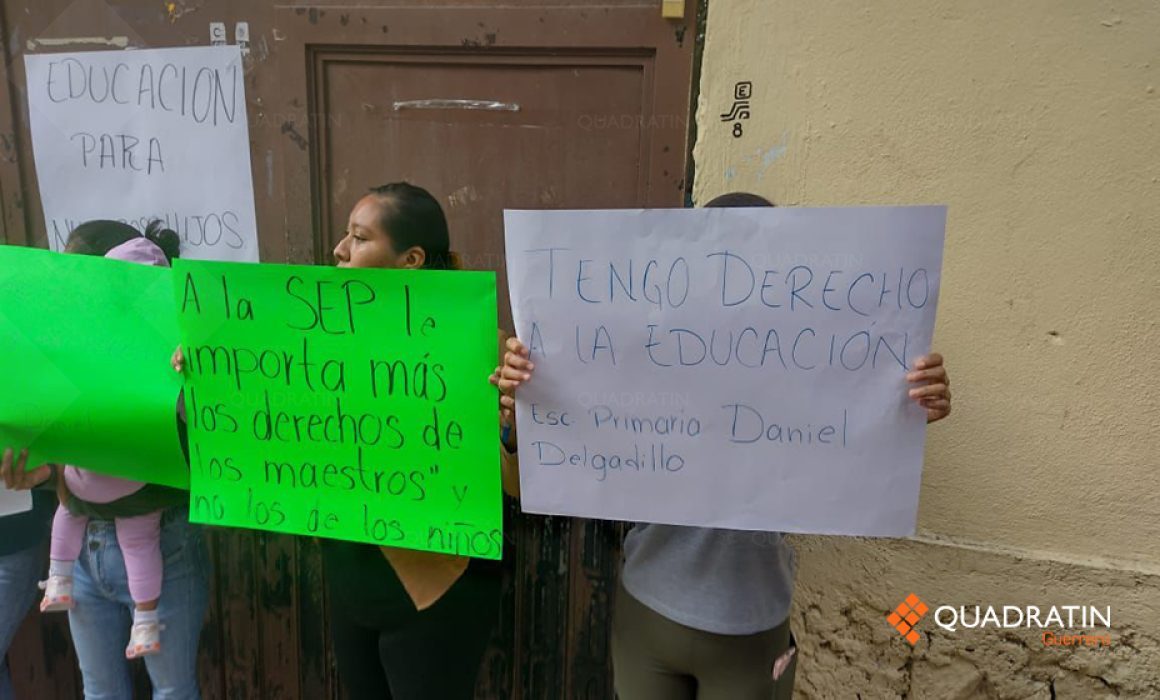 EDUCACION
PARA
HIJOS
A la SEP le
importa más
los derechos de
los maestros" y
no los de los niños
TENGO DERECHO
A LA EDUCACIÓN
Esc. Primaria Daniel
Delgadillo
E
8
QUADRATIN
Guerrero